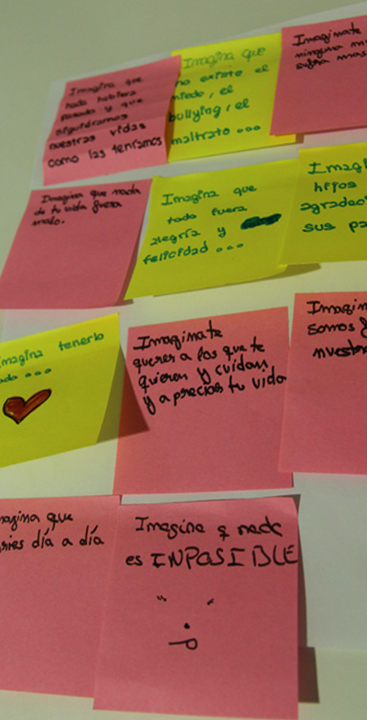 Imagina que
nada hubiera
pasado y que
siguiéramos
nuestras vidas
como las teníamos
Imagina que
no existe el
miedo, el
bullying, el
maltrato ...
Imaginate
ninguna mu
sufra mas
Imagina que nada
de tu vida fuera
malo.
Imagina que
todo fuera
alegría y
felicidad ...
Imagi
hijos
agradec
sus pa
magina tenerlo
odo ...
Imaginate
querer a los que te
quieren y cuidan
y aprecias tu vida
Imagin
somos
nuestr
magina que
ries día a día
Imagina q nada
es INPOSIBLE